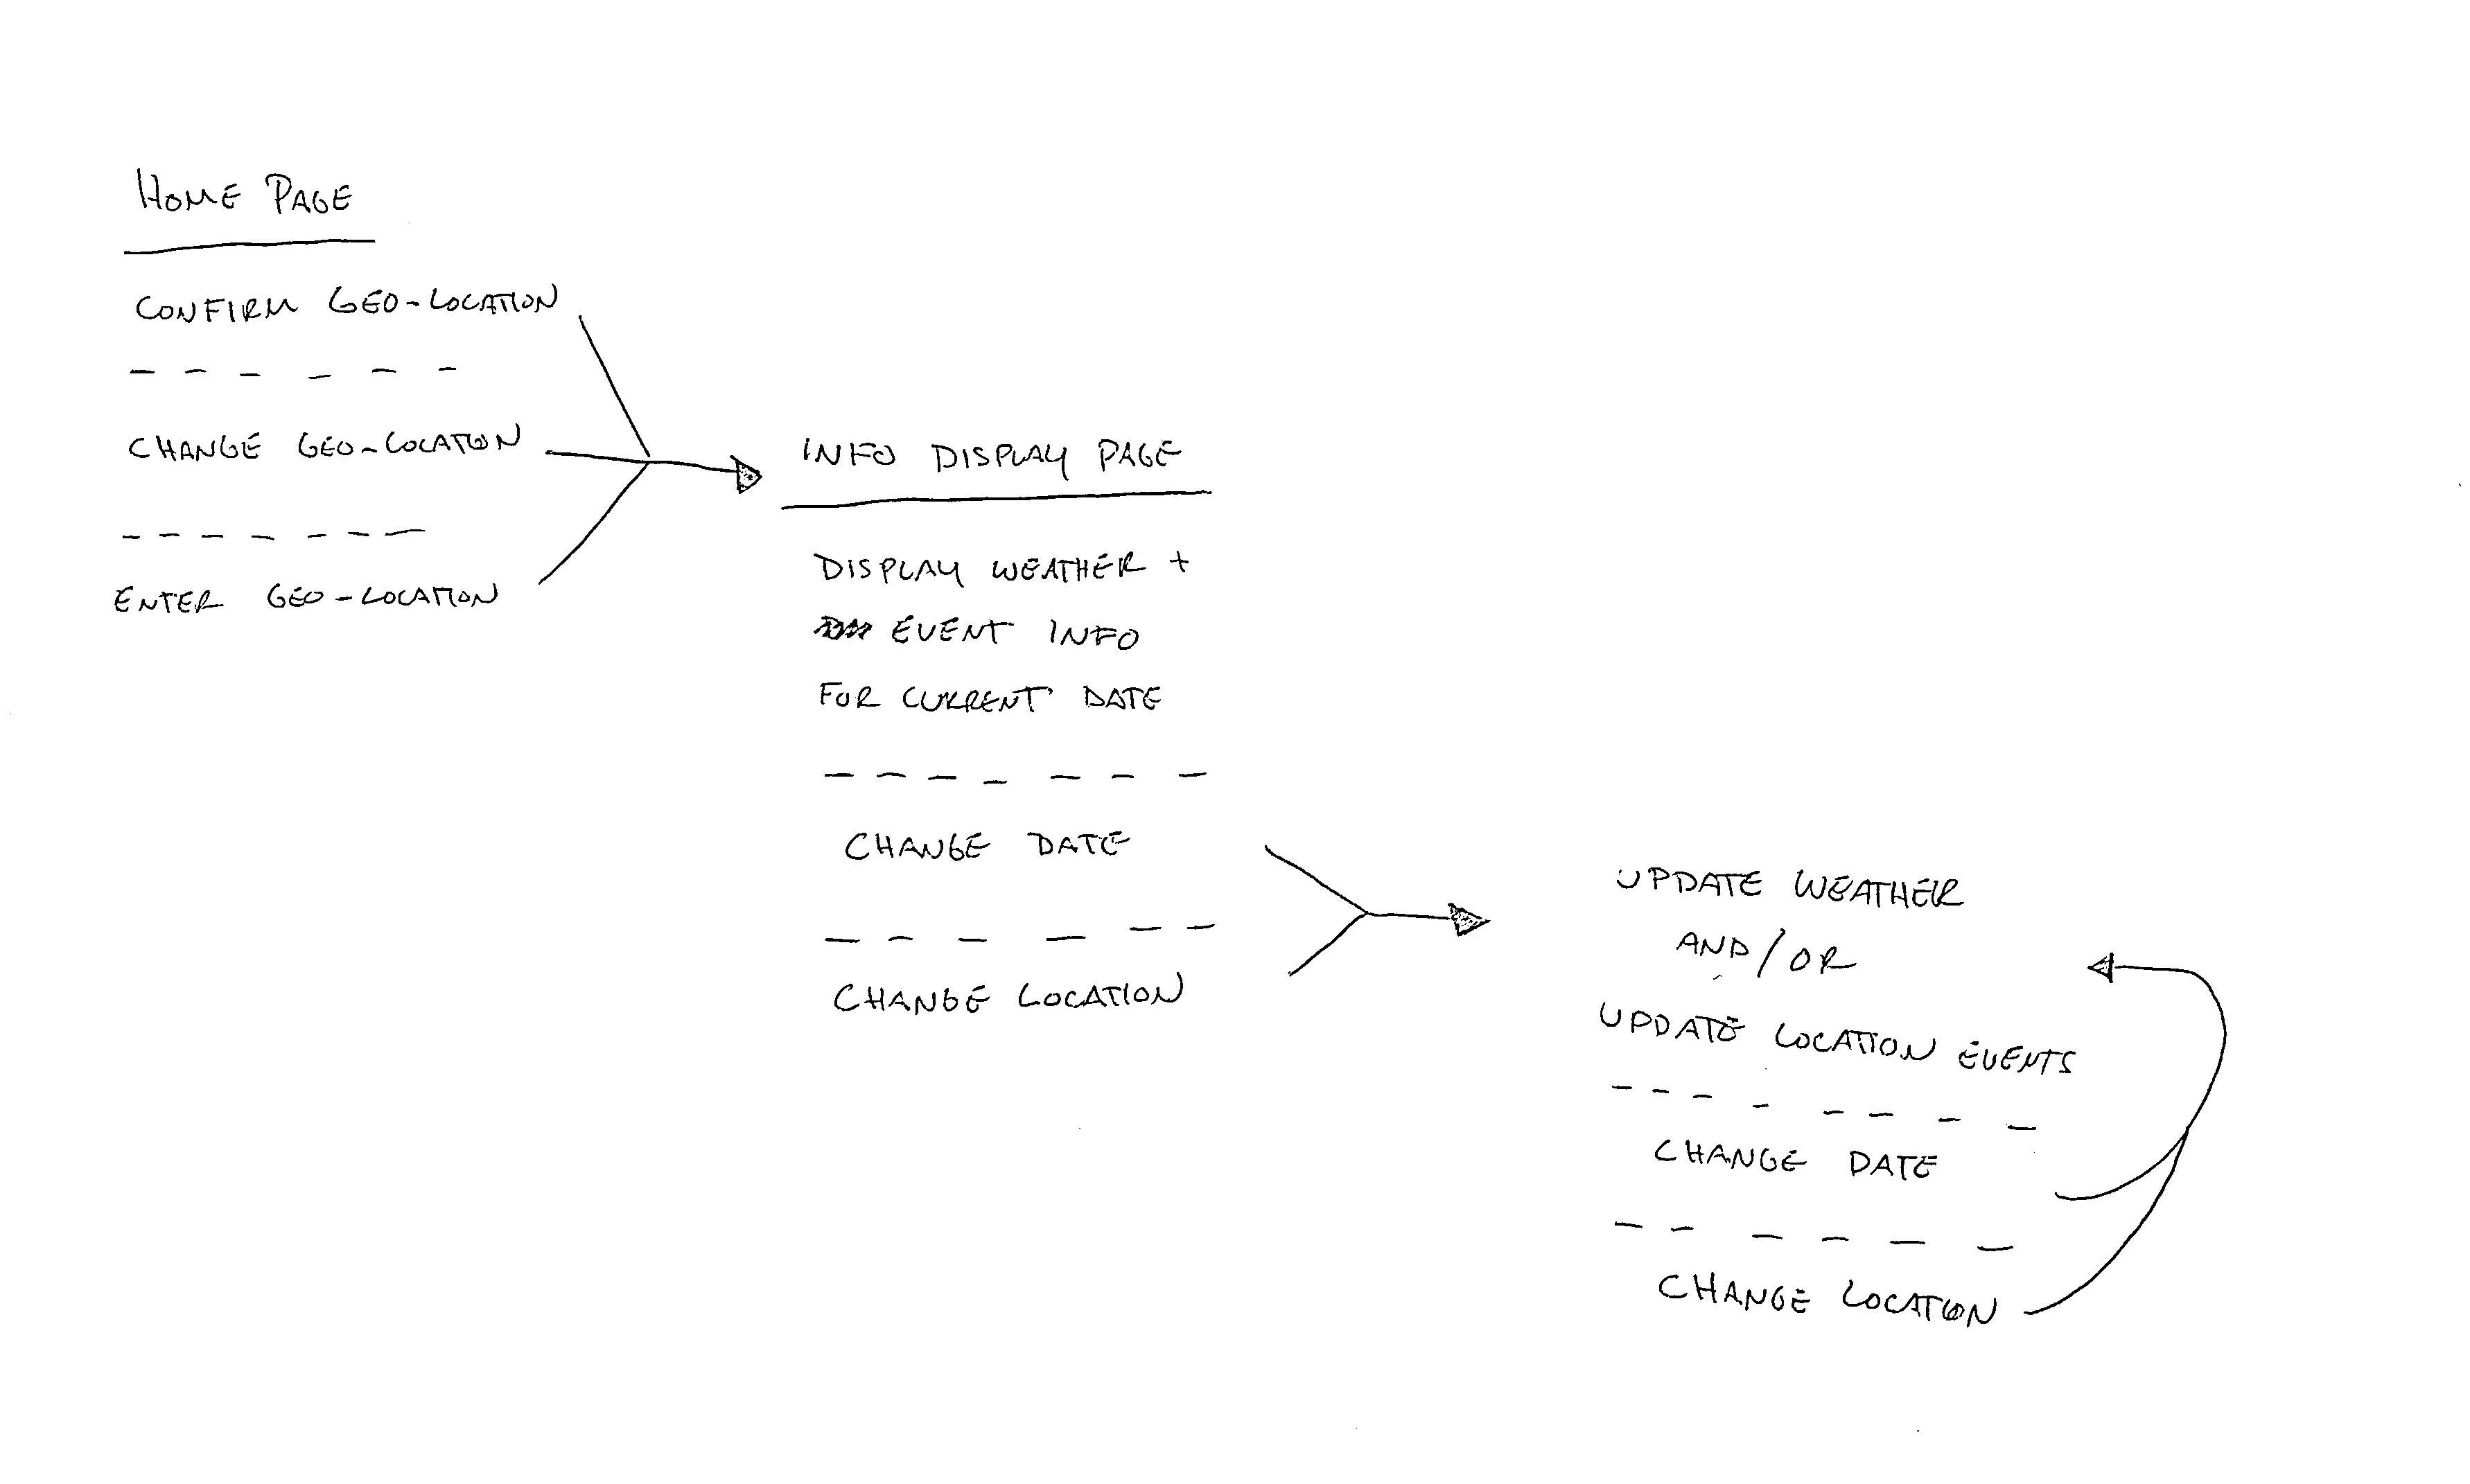 HOME PAGE
CONFIRM GEO-LOCATION
CHANGE GEO-LOCATION
ENTER GEO-LOCATION
INFO DISPLAY PAGE
DISPLAY WEATHER +
EVENT INFO
FOR CURRENT DATE
CHANGE DATE
CHANGE LOCATION
UPDATE WEATHER
AND/OR
UPDATE LOCATION EVENTS
CHANGE DATE
CHANGE LOCATION